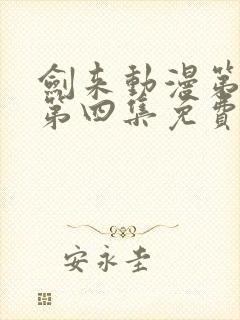 劍来動漫第
第四集免費
安永圭